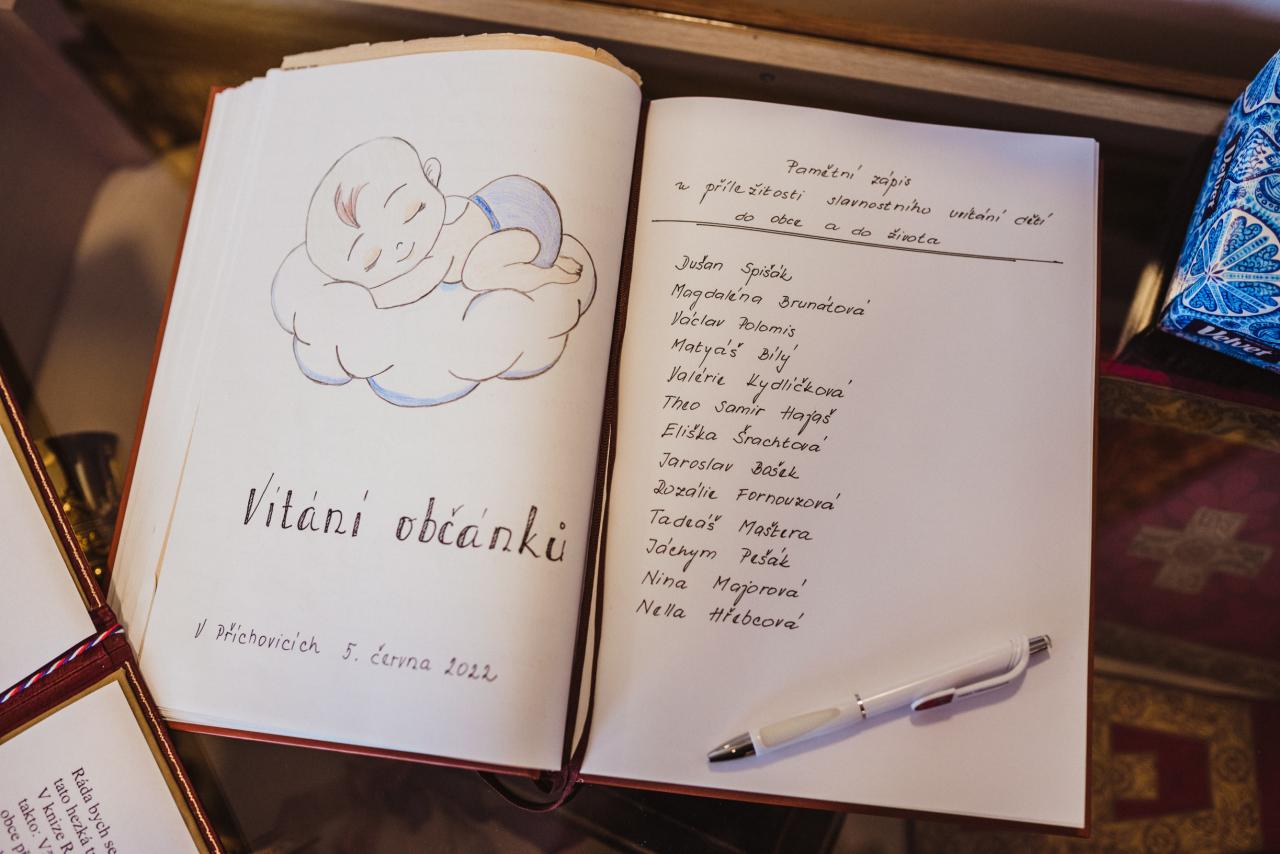 Vítání občánků
V Příchovicích 5. června 2022
Pamětní zápis
u příležitosti slavnostního vítání dětí
do obce a do života
Dušan Spišák
Magdaléna Brunátová
Václav Polomis
Matyáš Bílý
Valérie Kydlíčková
Theo Samir Hajaš
Eliška Šrachtová
Jaroslav Bašek
Rozálie Fornouzová
Tadeáš Maštera
Jáchym Pešák
Nina Majorová
Nella Hřebcová
Velvet
Ráda bych se
tato hezká
V knize R
takto:
obce